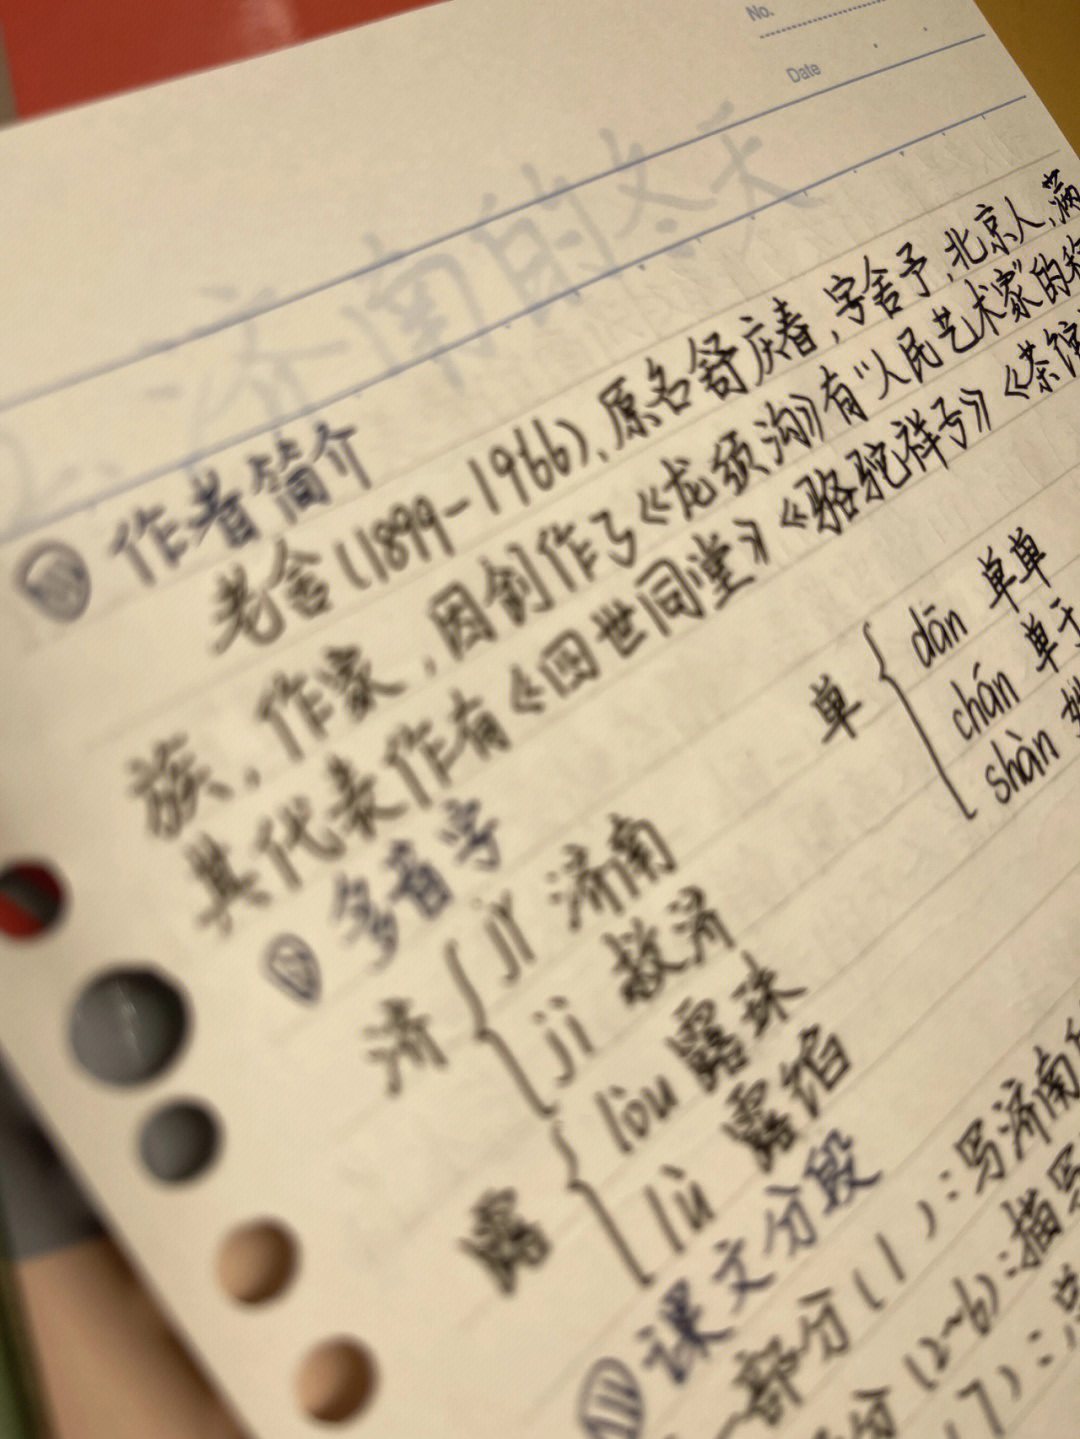 No.
Date
济南的冬天
作者简介
老舍(1899-1966),原名舒庆春,字舍予,北京人,满
族,作家,因创作了《龙须沟》有“人民艺术家”的称
其代表作有《四世同堂》《骆驼祥子》《茶馆
多音字
济 jǐ 济南
jì 救济
单 dān 单单
chán 单于
shàn
露 lòu 露珠
lù 露馅
课文分段
一部分(1):写济南
部分(2~6):描写
(7):总